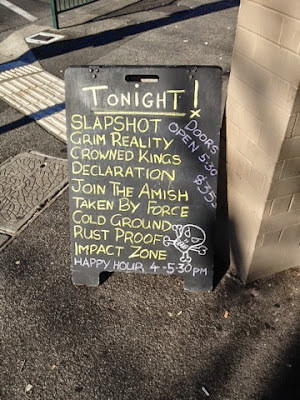 TONIGHT!
SLAPSHOT
GRIM REALITY
CROWNED KINGS
DECLARATION
JOIN THE AMISH
TAKEN BY FORCE
COLD GROUND
RUST PROOF
IMPACT ZONE
HAPPY HOUR 4-5:30 PM
DOORS
OPEN 5:30
$35